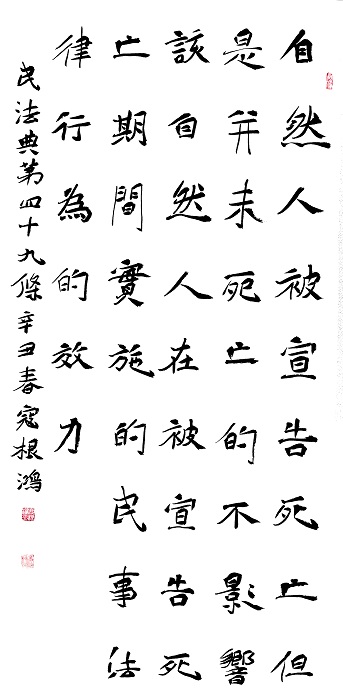 自然人被宣告死亡但
是并未死亡的不影響
該自然人在被宣告死
亡期間實施的民事法
律行為的效力
民法典第四十九條辛丑春寇根鴻